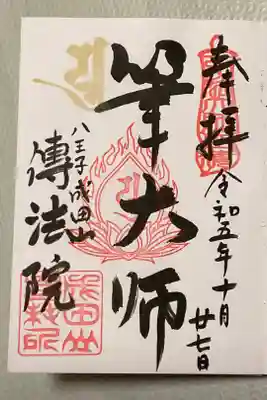 奉拝
令和五年十月廿七日
筆大師
八王子成田山
傳法院